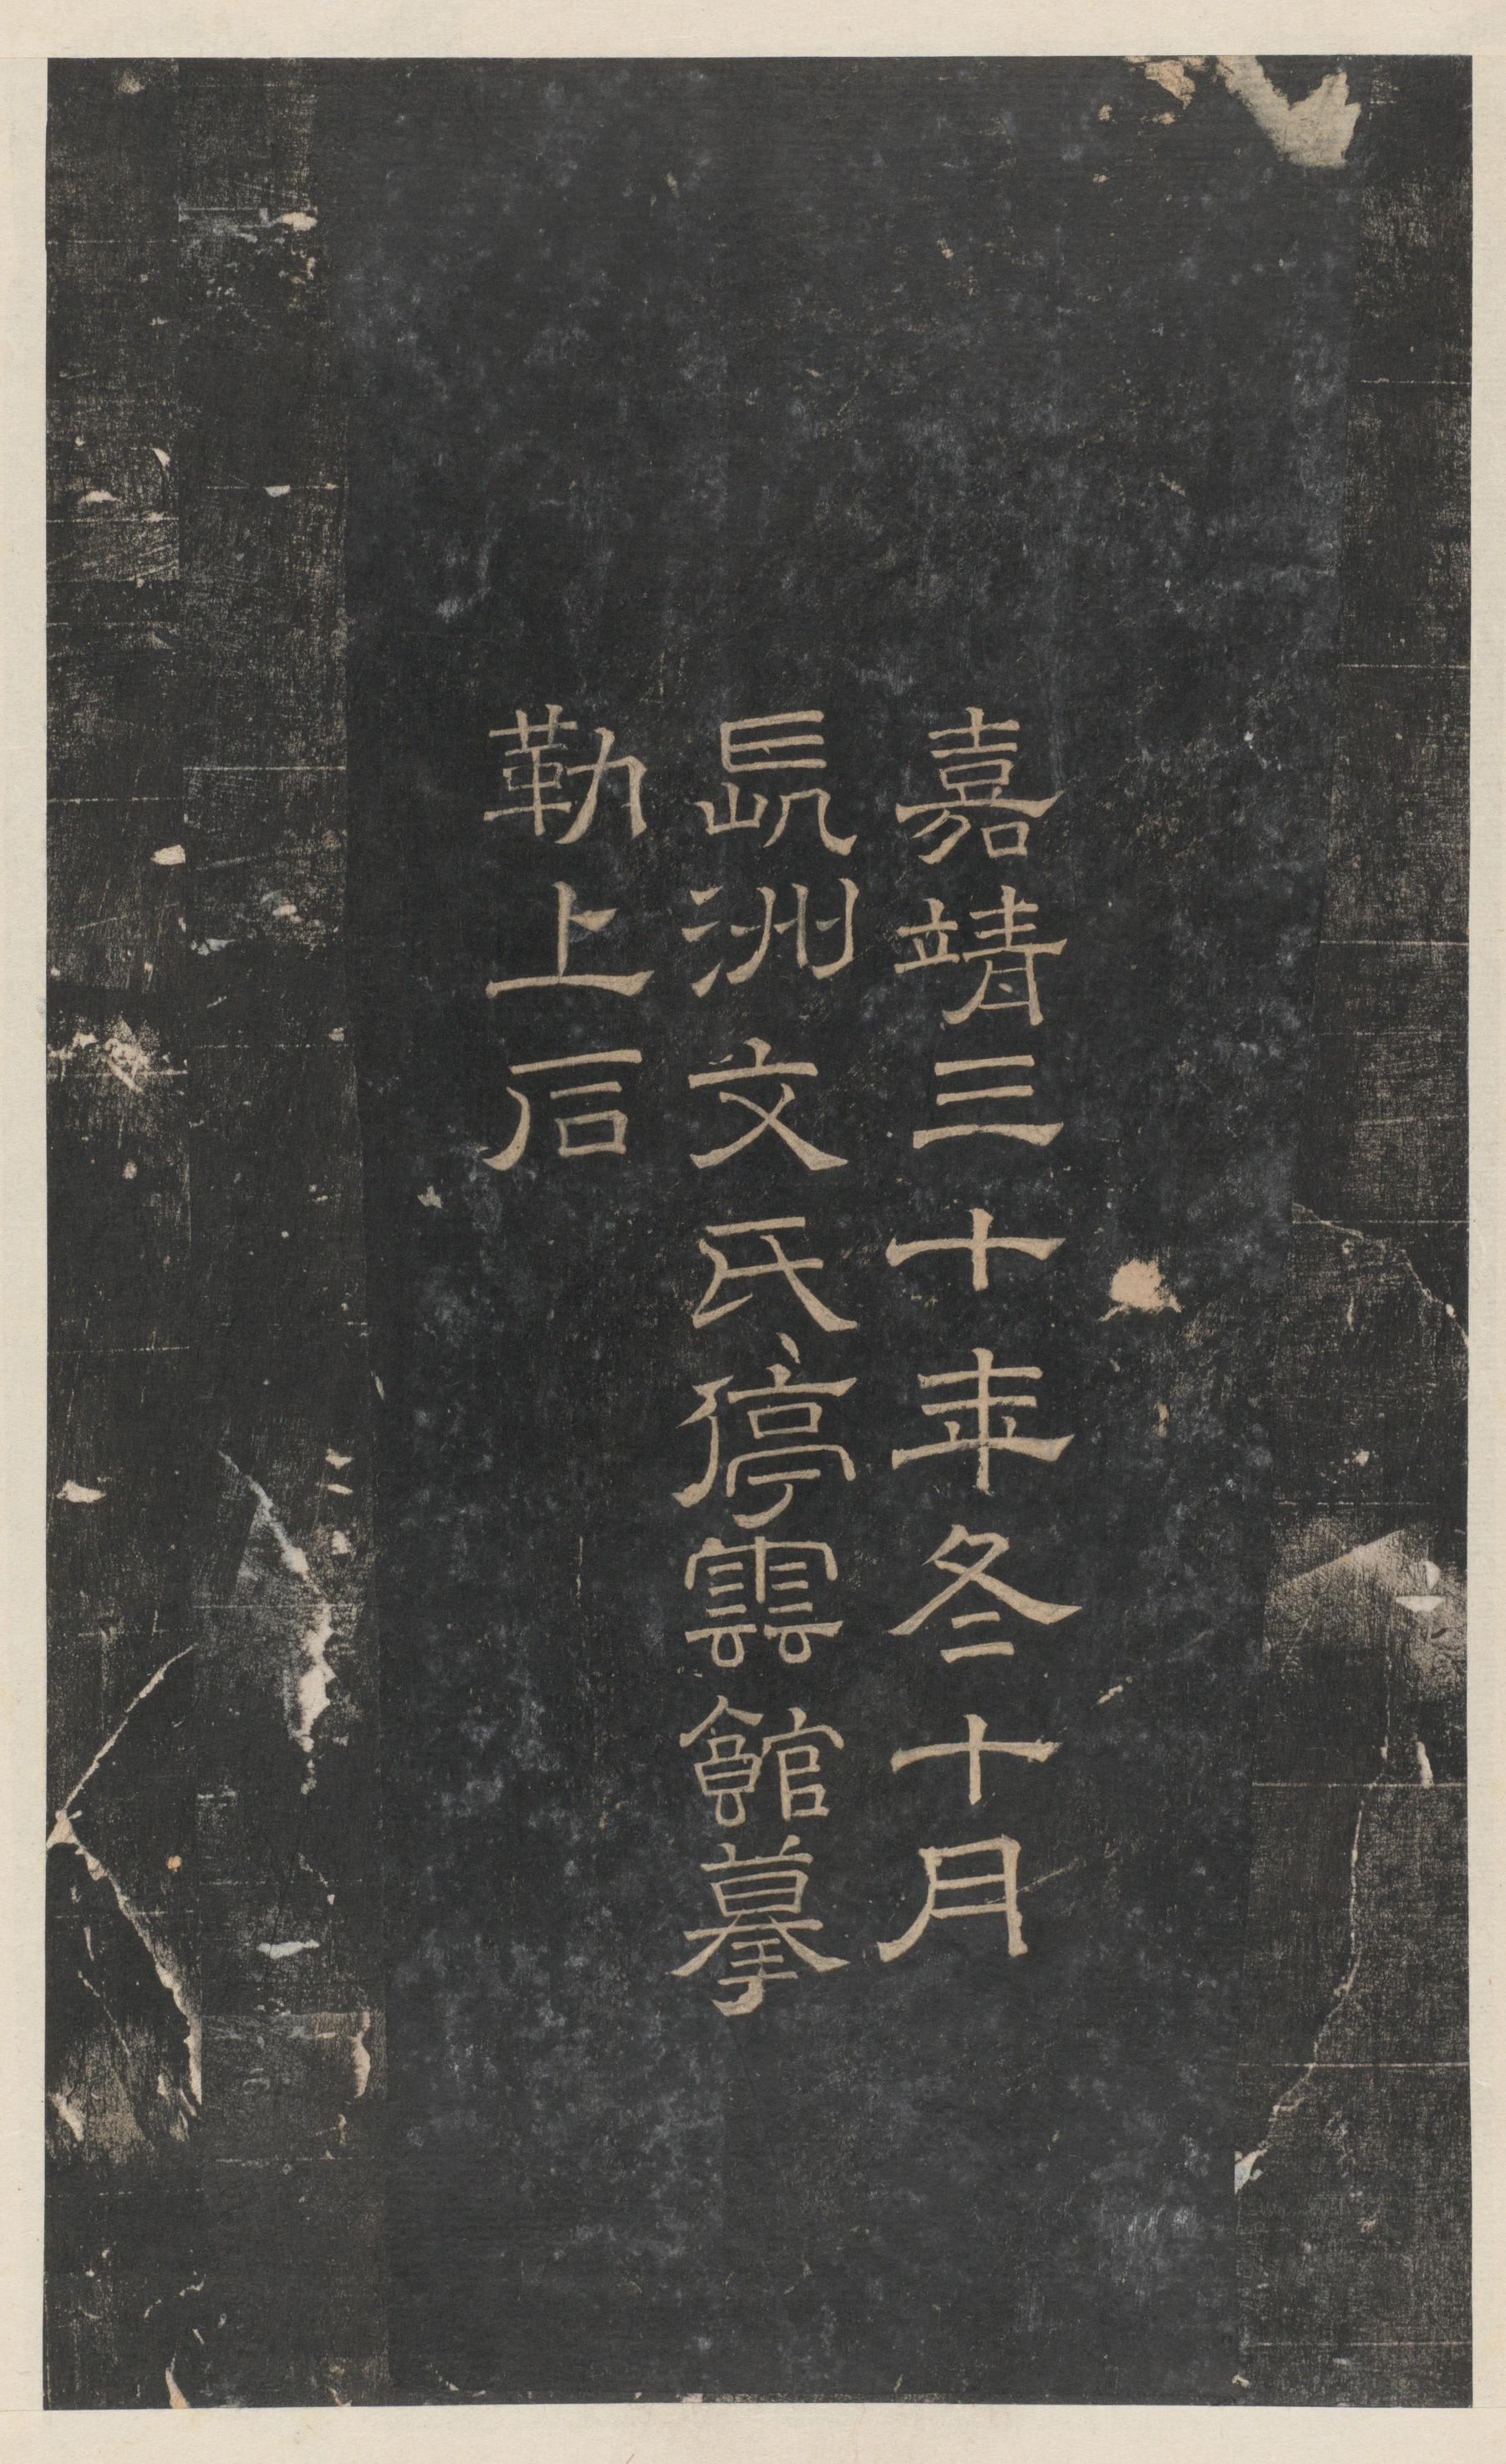 嘉靖三十年冬十月
長洲文氏停雲館摹
勒上石